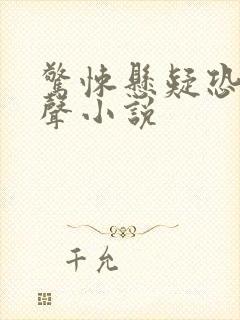 驚悚懸疑恐
聲小説
千允